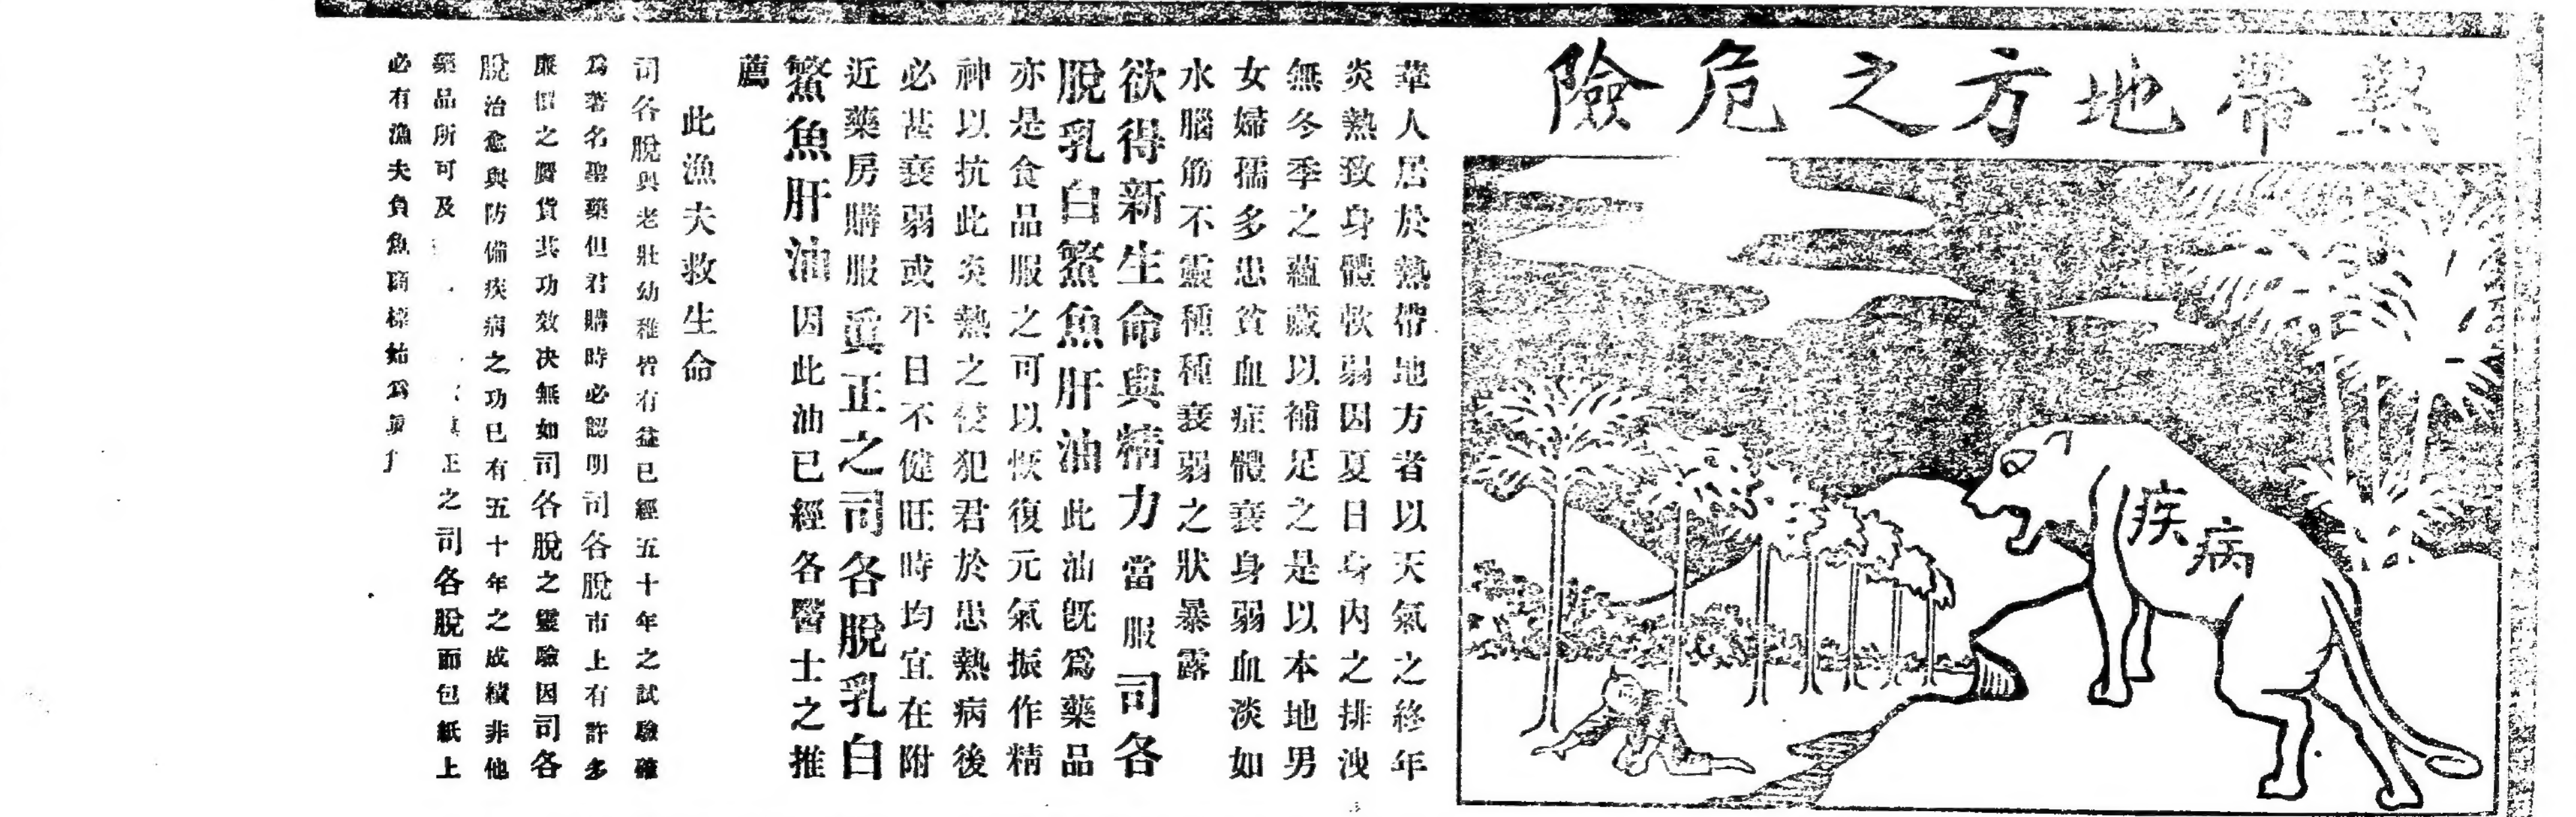 熱帶地方之危險
疾病
華人居於熱帶地方者以天氣之終年
炎熱致身體軟弱因夏日身內之排洩
無冬季之蘊藏以補足之是以本地男
女婦孺多患貧血症體衰身弱血淡如
水腦筋不靈種種衰弱之狀暴露
欲得新生命與精力當服司各
脫乳白鰵魚肝油此油旣爲藥品
亦是食品服之可以恢復元氣振作精
神以抗此炎熱之侵犯君於患熱病後
必甚衰弱或平日不健旺時均宜在附
近藥房購服眞正之司各脫乳白
鰵魚肝油因此油已經各醫士之推
薦
此漁夫救生命
司各脫與老壯幼稚皆有益已經五十年之試驗確
爲著名聖藥但君購時必認明司各脫市上有許多
廉價之膺貨其功效决無如司各脫之靈驗因司各
脫治愈與防備疾病之功已有五十年之成績非他
藥品所可及 正之司各脫面包紙上
必有漁夫負魚商標始爲